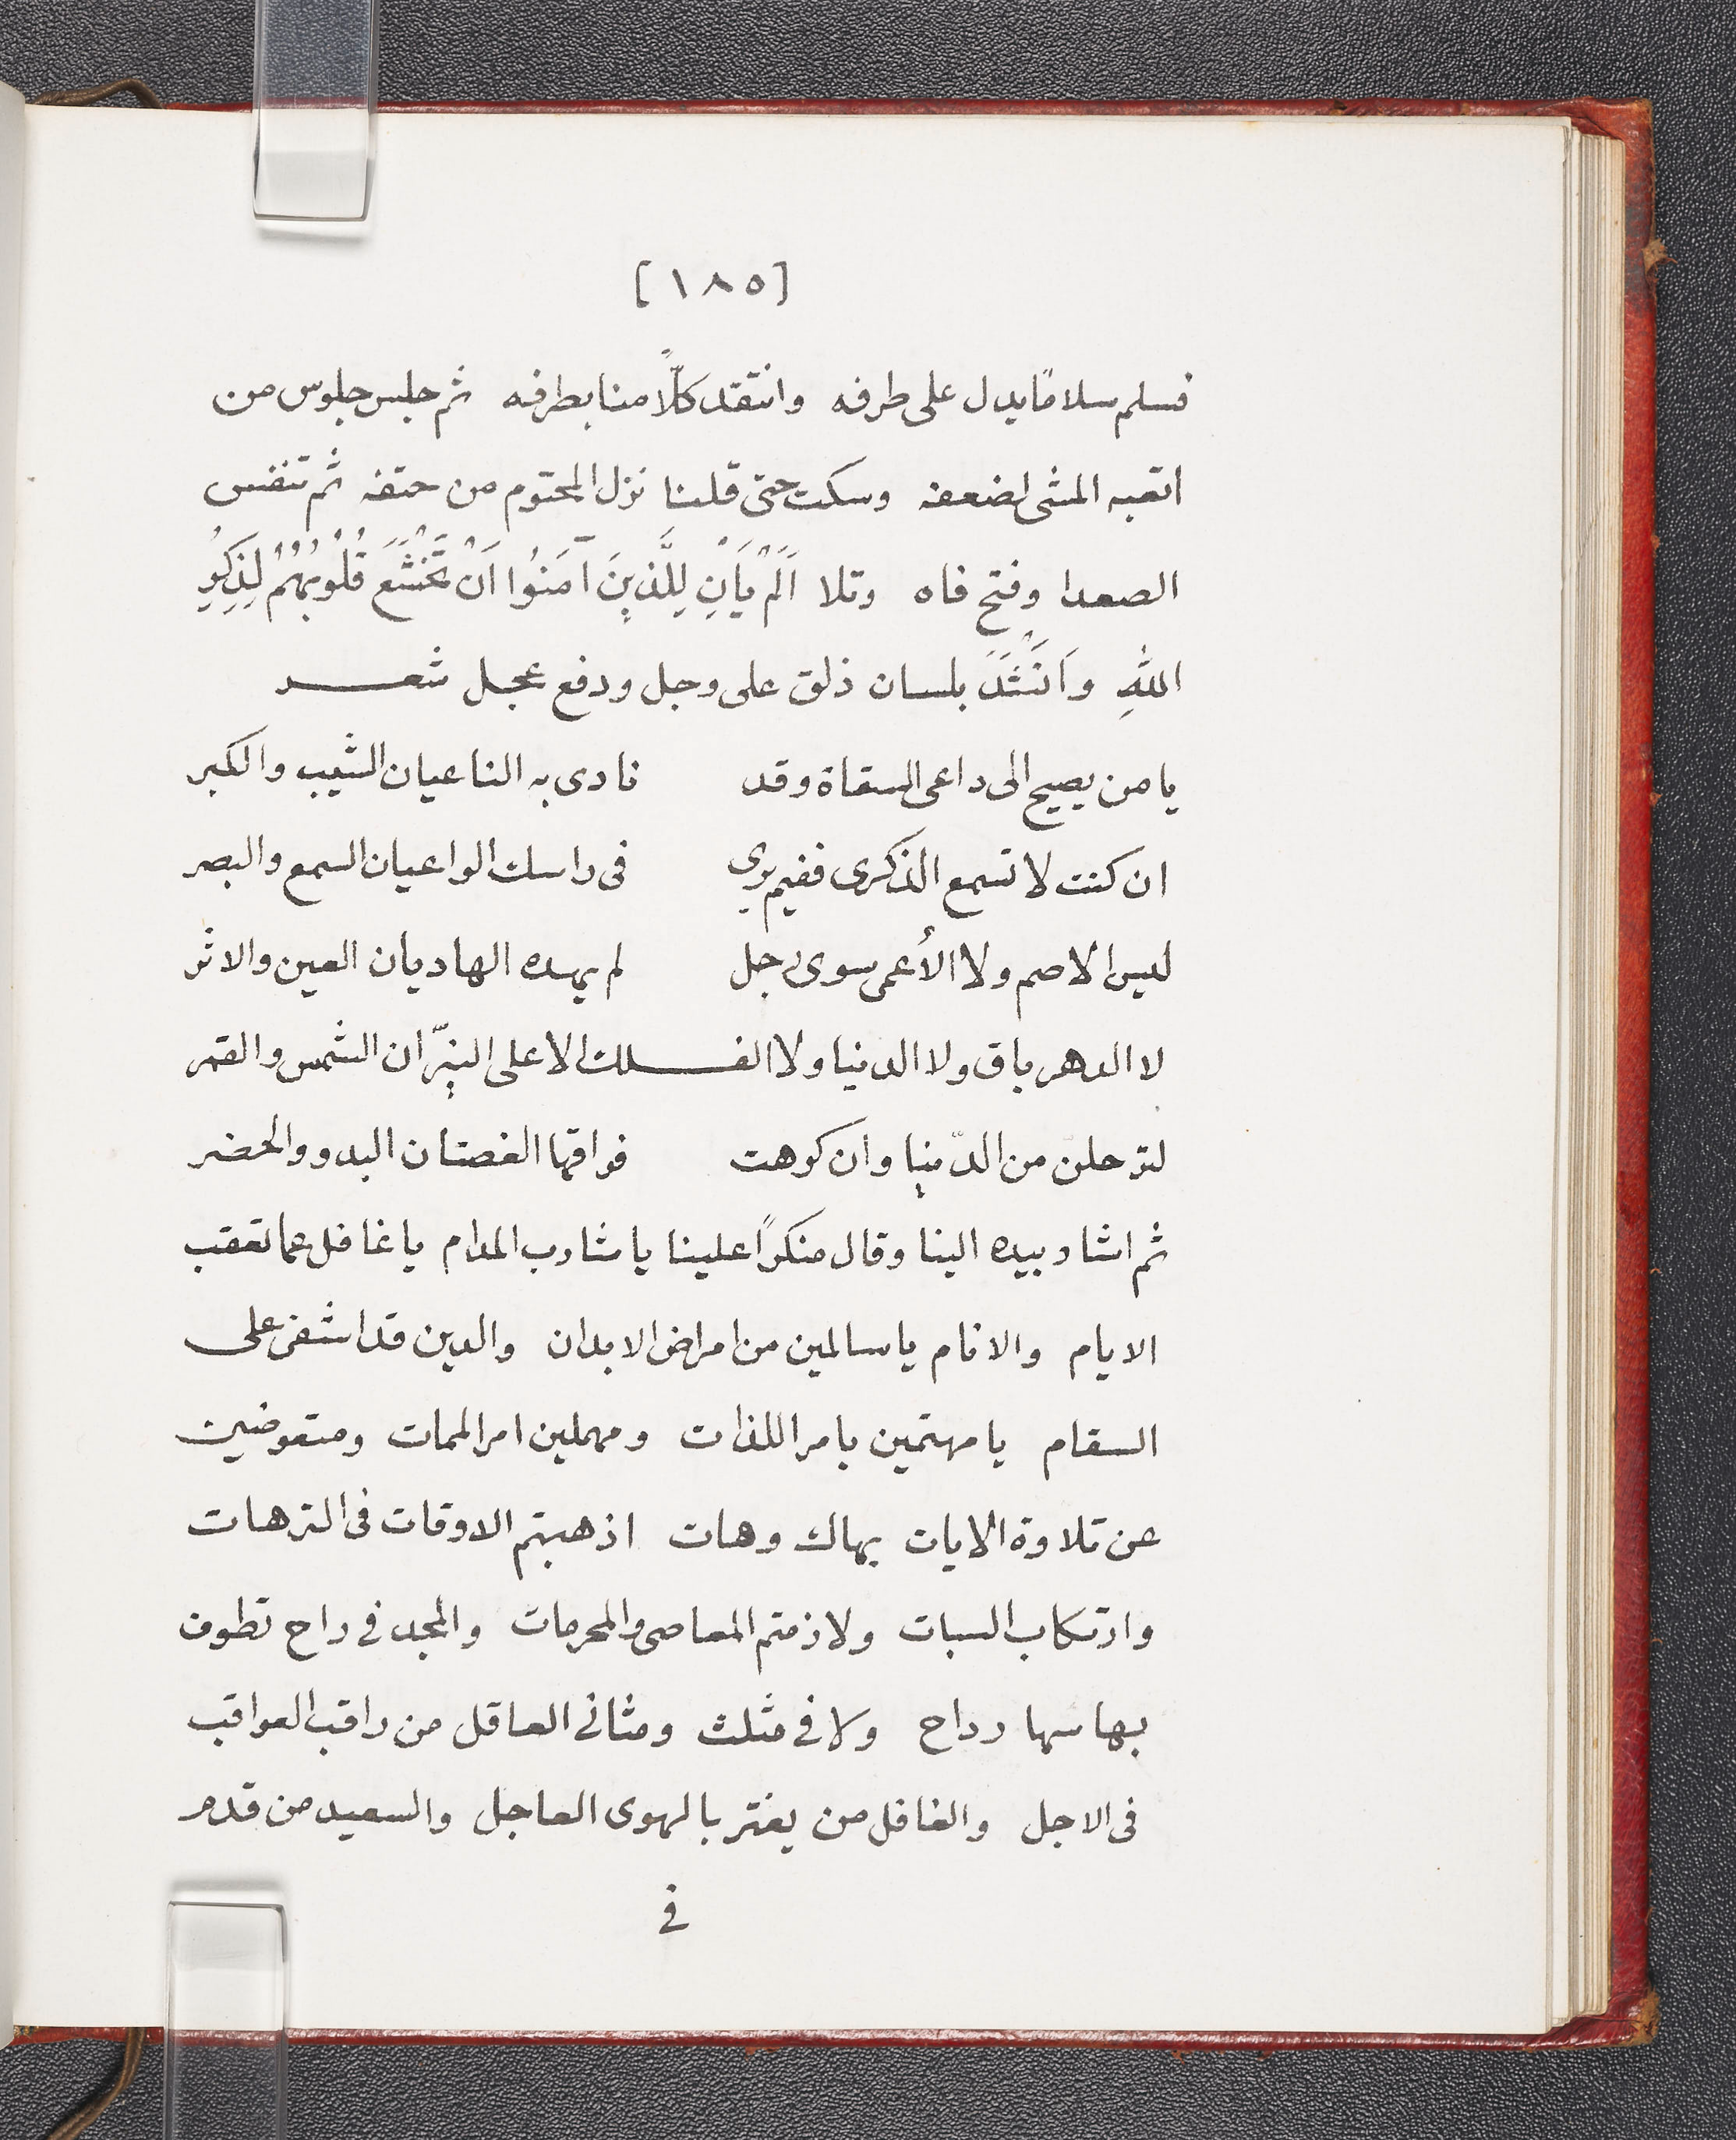 [١٨٥]
فسلم سلامًا يدل على طرفه وانتقد كلًّا منا بطرفه ثم جلس جلوس من
اتعبه المشى لضعفه وسكت حتى قلنا نزل المحتوم من حتفه ثم تنفس
الصعدا وفتح فاه وتلا اَلَمْ يَأنِ لِلَّذِينَ آمَنُوا اَنْ تَخْشَعَ قُلُوبُهُمْ لِذِكْرِ
اللهِ وَاَنْشَدَ بلسان ذلق على وجل ودفع عجل شعر
يا من يصيح الى داعى السقاة وقد نادى به الناعيان الشيب والكبر
ان كنت لا تسمع الذكرى ففيم يرى فى راسك الواعيان السمع والبصر
ليس الاصم ولا الأعمى سوى رجل لم يهده الهاديان العين والاثر
لا الدهر باق ولا الدنيا ولا الفلك الاعلى النيّران الشمس والقمر
لترحلنّ من الدّنيا وان كرهت فراقها الغصتان البدو والحضر
ثم اشار بيده الينا وقال منكرًا علينا يا شارب المدام يا غافل عما تعقب
الايام والانام يا سالمين من امراض الابدان والدين قد اشفى على
السقام يا مهتمين بامر اللذات ومهملين امر الممات ومتعوضين
عن تلاوة الايات بهاك وهات اذهبتم الاوقات فى الترهات
وارتكاب السبات ولازمتم المعاصى والمحرمات والمجد فى راح تطوف
بها سها رداح ولا فى مثلث ومثانى العاقل من راقب العواقب
فى الاجل والغافل من يغتر بالهوى العاجل والسعيد من قدم
فى